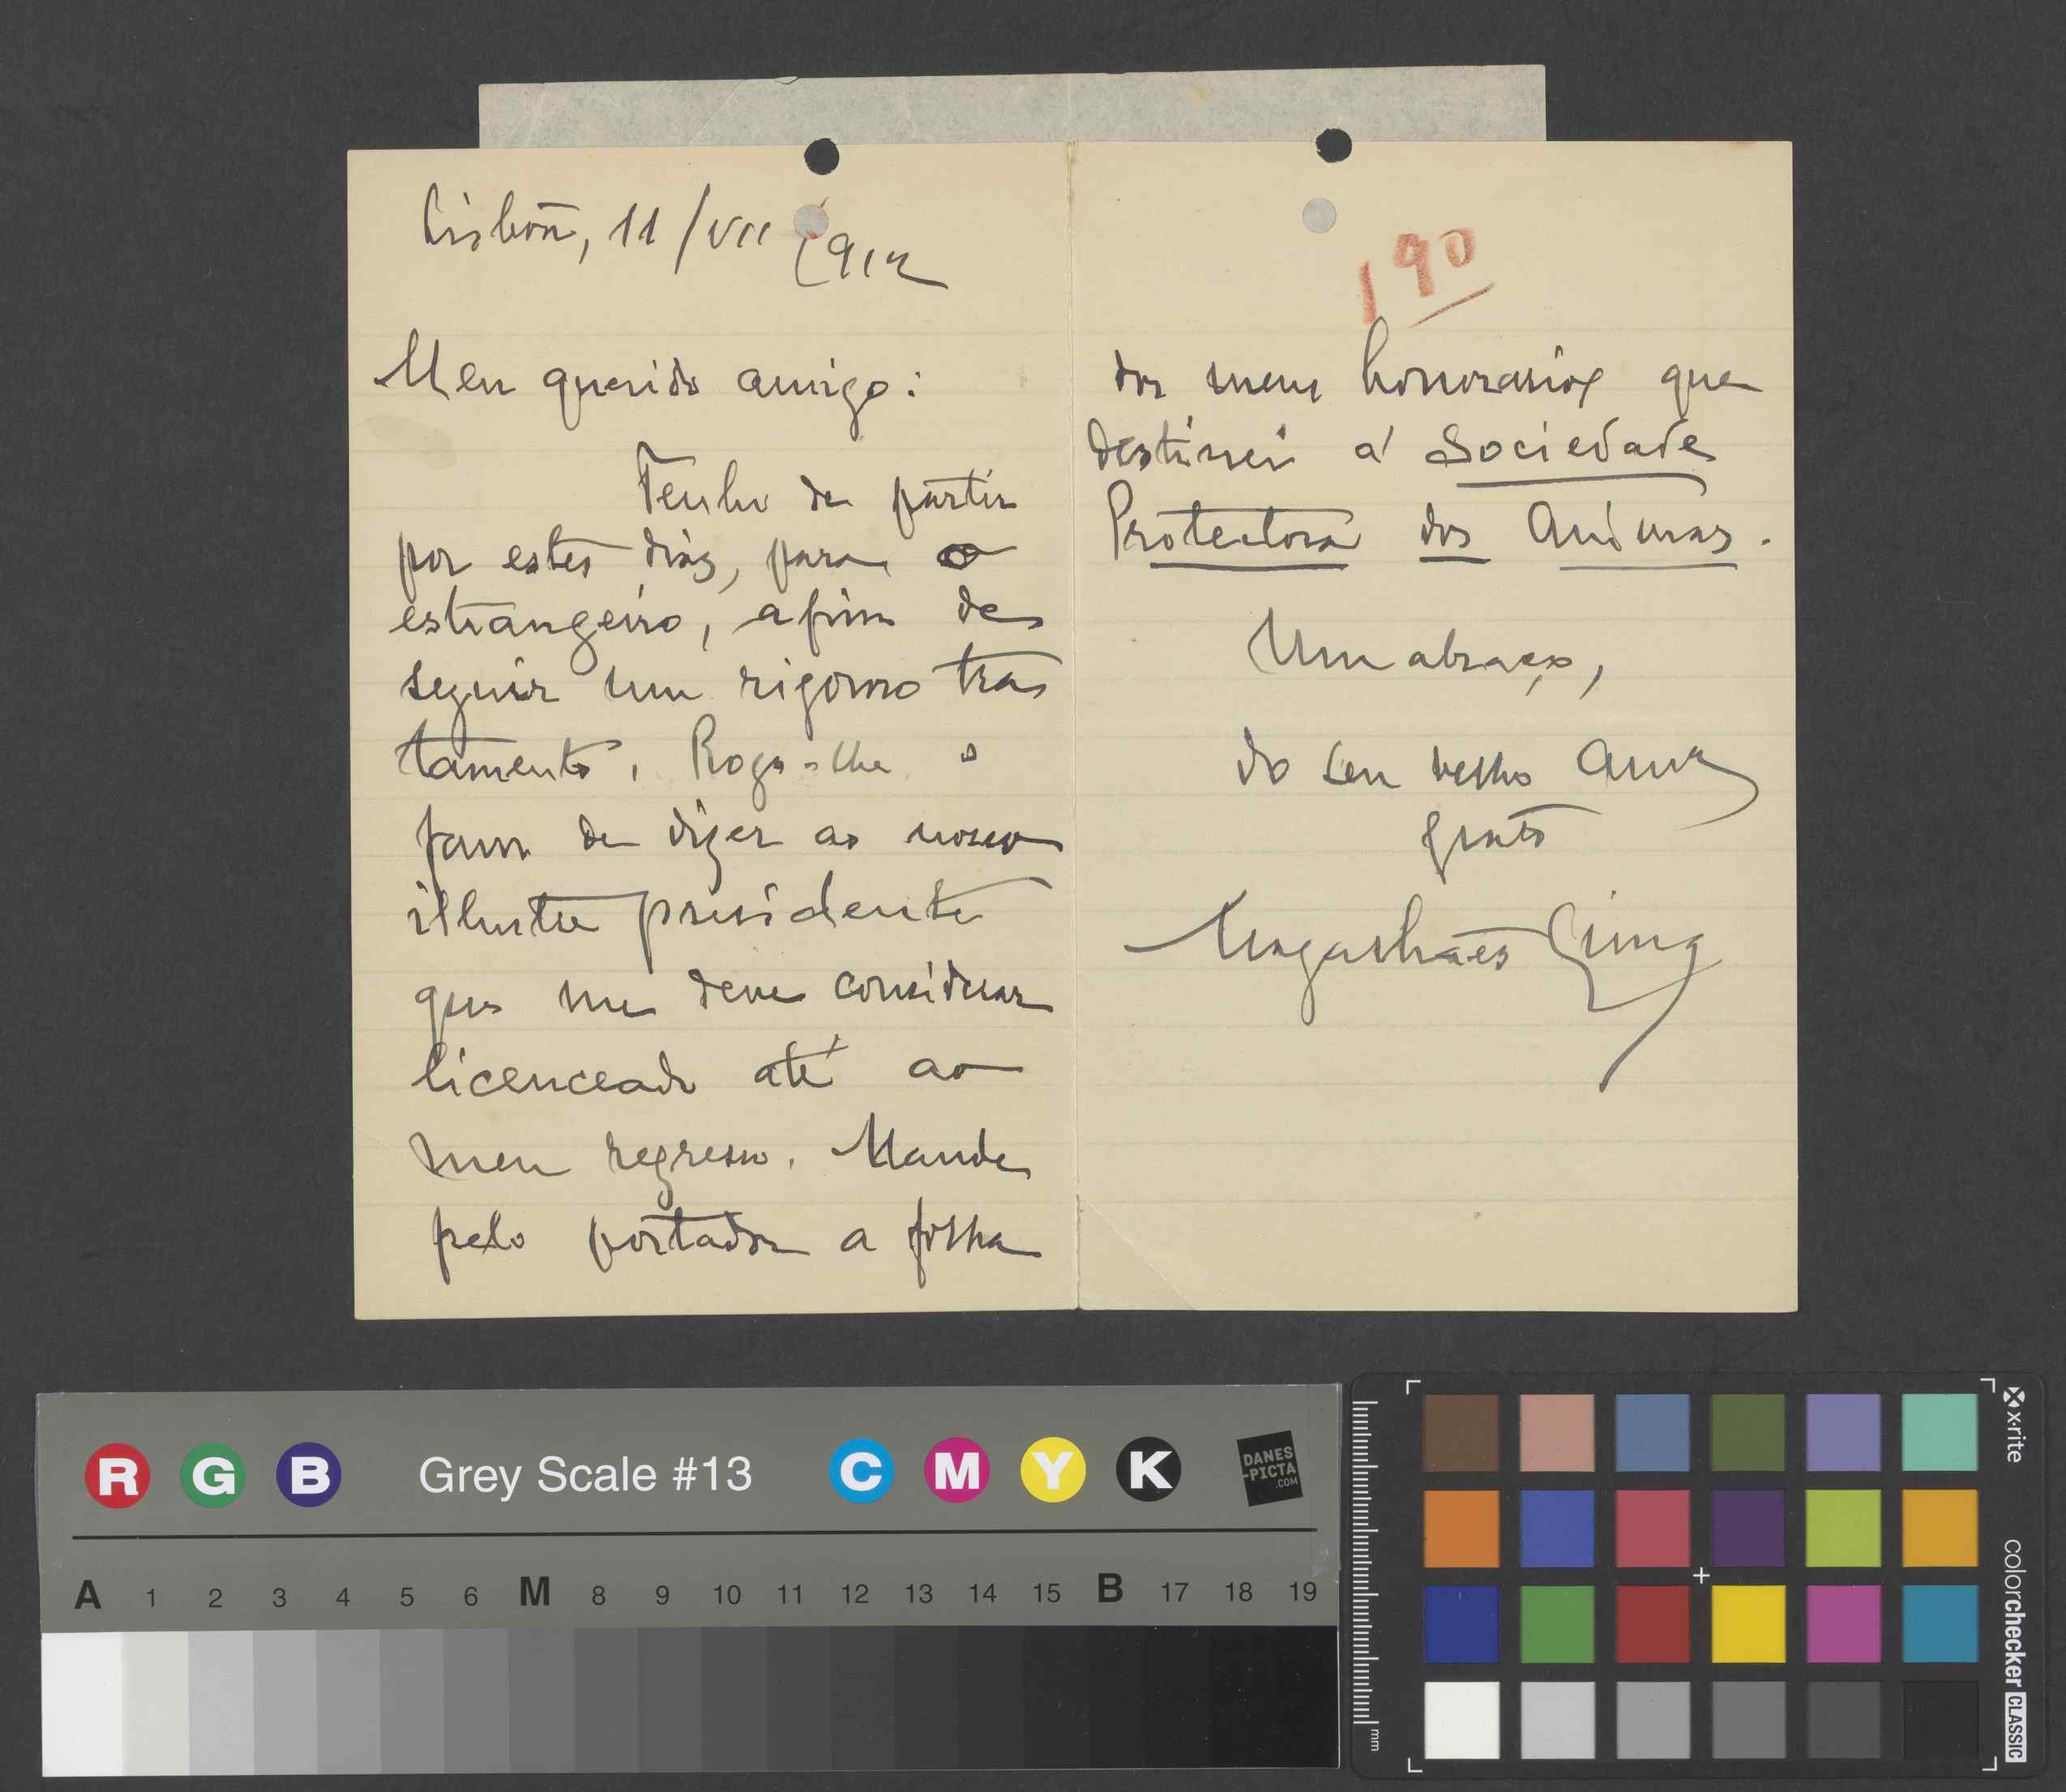 Lisboa, 11/VII 1912
Meu querido amigo:
Tenho de partir
por estes dias, para o
estrangeiro, a fim de
seguir um rigoroso tra
tamento. Rogo-lhe o
favor de dizer ao nosso
illustre presidente
que me deve considerar
licenceado até ao
meu regresso. Mande
pelo portador a folha
190
dos meus honorarios que
destinei á Sociedade
Protectora dos Animaes.
Um abraço,
do seu velho amº
grato
Magalhães Lima
R G B Grey Scale #13 C M Y K DANES
-PICTA
.COM
A 1 2 3 4 5 6 M 8 9 10 11 12 13 14 15 B 17 18 19
mm
x-rite
colorchecker CLASSIC